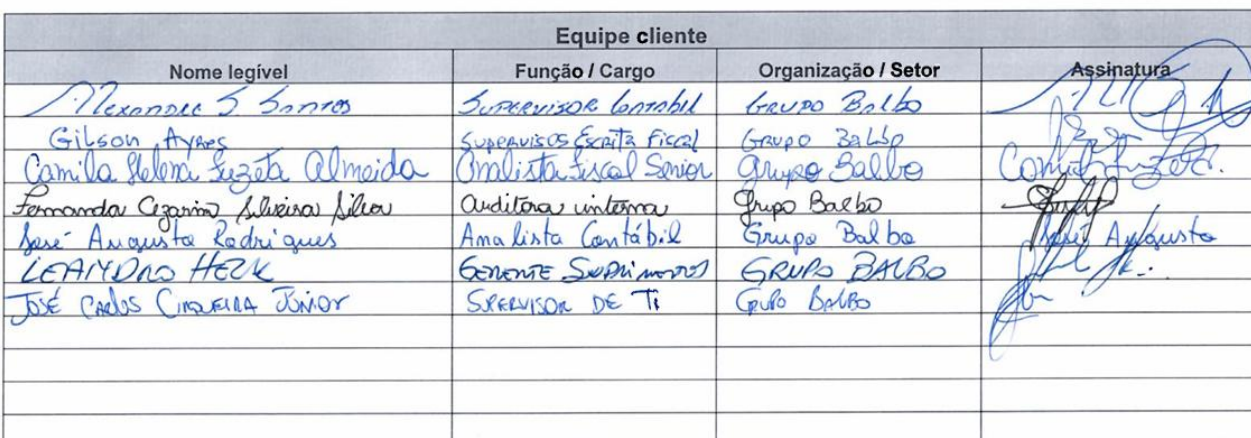 Equipe cliente
Nome legível Função / Cargo Organização / Setor Assinatura
Alexandre S. Santos Supervisor Contabil Grupo Balbo
Gilson Ayres Supervisor Escrita Fiscal Grupo Balbo
Camila Helena Suzeta Almeida Analista Fiscal Senior Grupo Balbo
Fernanda Cezarino Silveira Silva auditora interna Grupo Balbo
José Augusto Rodrigues Analista Contábil Grupo Balbo José Augusto
LEANDRO HECK GERENTE SUPRIMENTOS GRUPO BALBO
JOSÉ CARLOS CIRQUEIRA JÚNIOR SUPERVISOR DE TI GRUPO BALBO